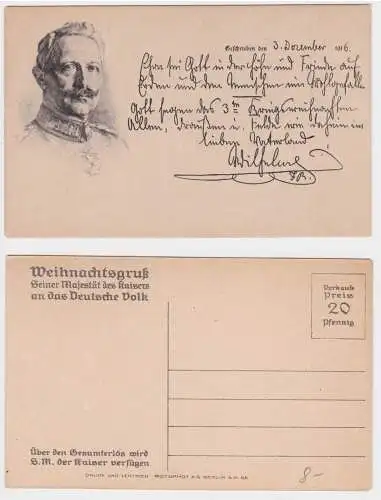 Geschrieben den 3. Dezember 1916.
Ehre sei Gott in der Höhe und Friede auf
Erden und den Menschen ein Wohlgefallen
Gott segne das 3te Kriegsweihnachten
Allen, draußen i. Felde wie daheim im
lieben Vaterland
Wilhelm
I.R.
Weihnachtsgruß
Seiner Majestät des Kaisers
an das Deutsche Volk
Verkaufs
Preis
20
Pfennig
Über den Gesamterlös wird
S.M. der Kaiser verfügen
DRUCK UND VERTRIEB ROTOPHOT A.G. BERLIN S.W. 68
8-